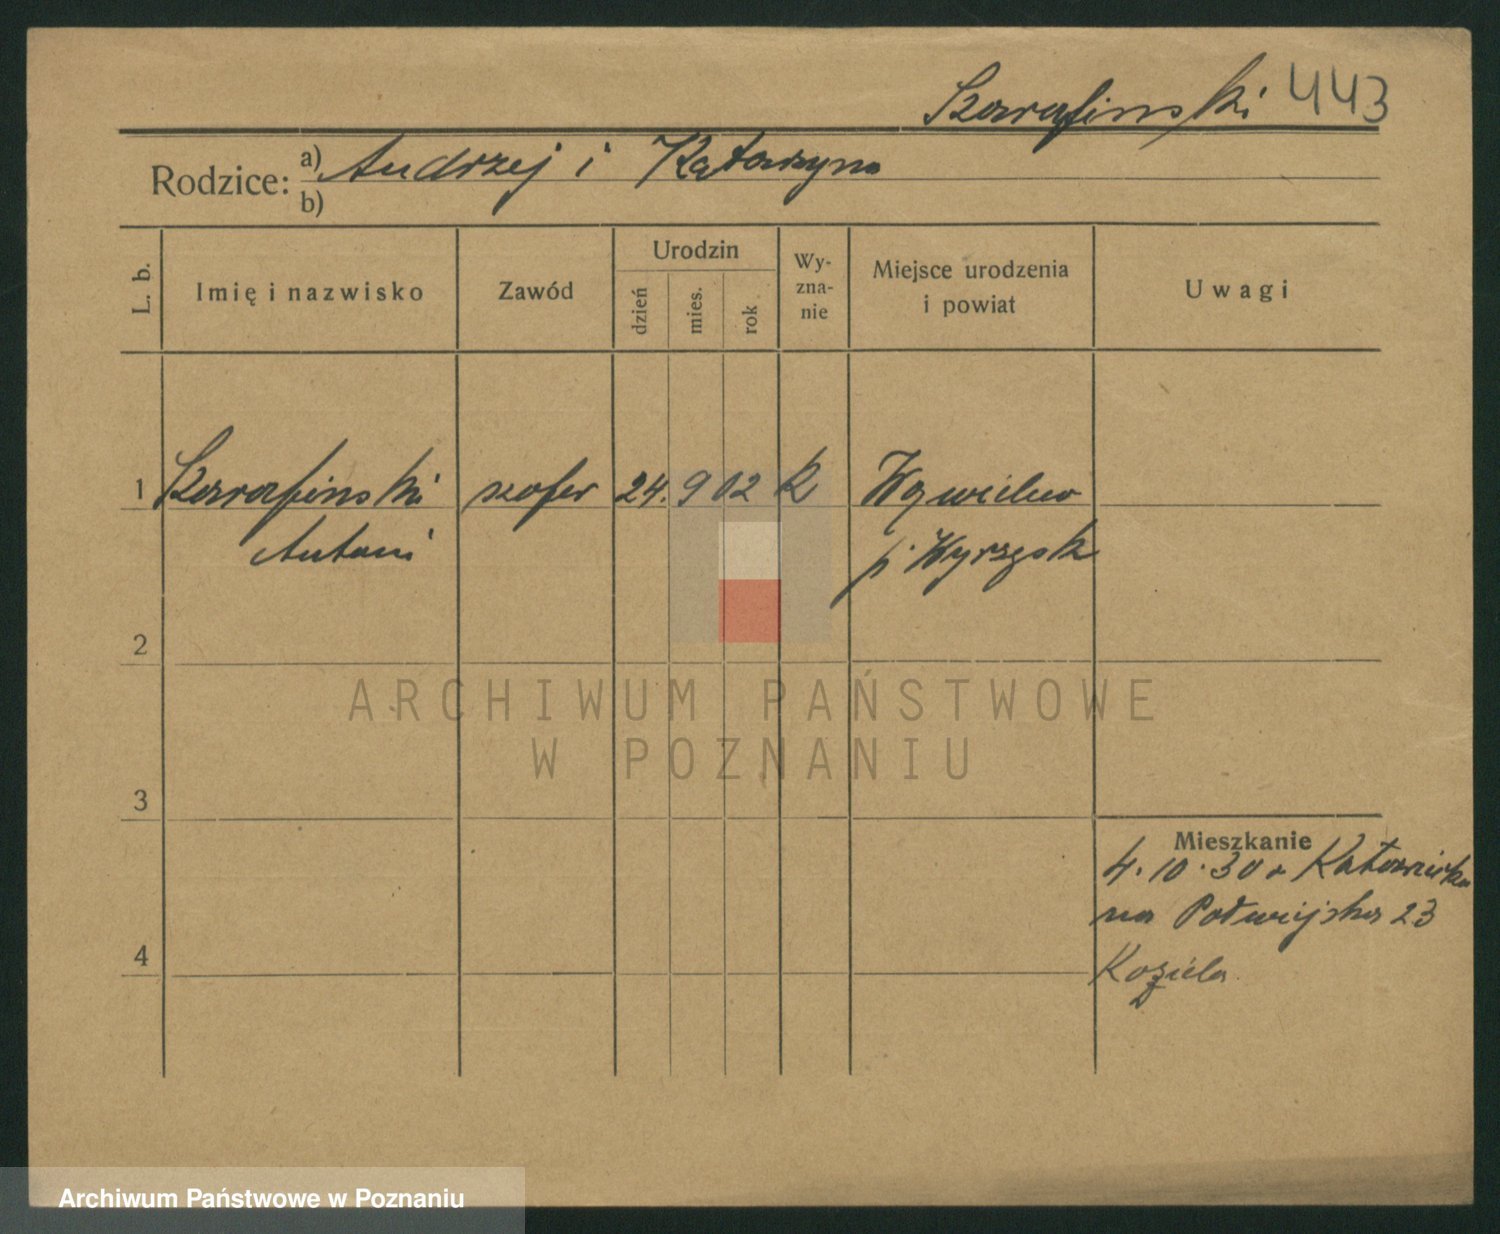 Szarafinski 443
Rodzice: a) Andrzej i Katarzyna
b)
L. b.
Imię i nazwisko
Zawód
Urodzin
dzień
mies.
rok
Wy-
zna-
nie
Miejsce urodzenia
i powiat
Uwagi
1 Szarafinski szofer 24. 9 02 k
Antoni p. Wyrzysk
2
3
4
Mieszkanie
4.10.30
na 23
Koziela
ARCHIWUM PAŃSTWOWE
W POZNANIU
Archiwum Państwowe w Poznaniu